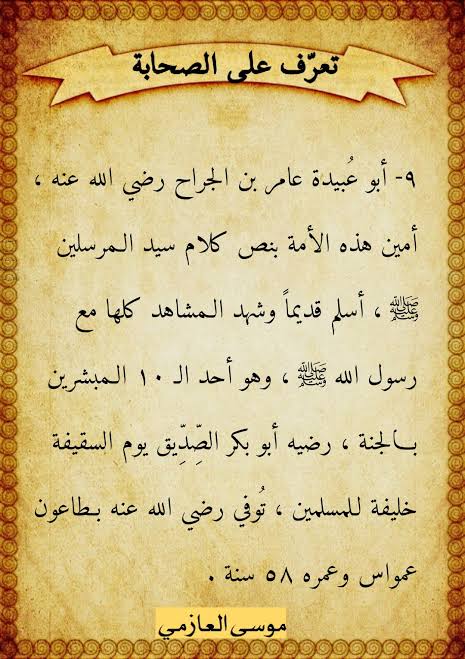 تعرّف على الصحابة
٩- أبو عُبيدة عامر بن الجراح رضي الله عنه ،
أمين هذه الأمة بنص كلام سيد المرسلين
ﷺ ، أسلم قديماً وشهد المشاهد كلها مع
رسول الله ﷺ ، وهو أحد الـ ١٠ المبشرين
بالجنة ، رضيه أبو بكر الصِّدِّيق يوم السقيفة
خليفة للمسلمين ، تُوفي رضي الله عنه بطاعون
عمواس وعمره ٥٨ سنة .
موسى العازمي